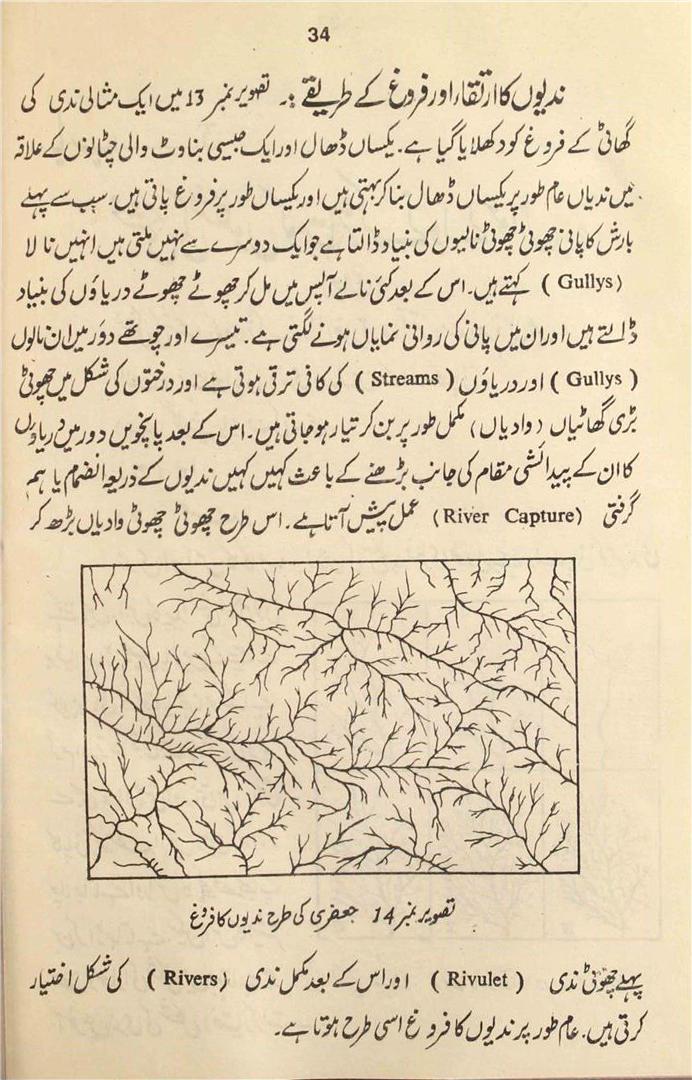 34
ندیوں کا ارتقاء اور فروغ کے طریقے :۔ تصویر نمبر 13 میں ایک مثالی ندی کی
گھاٹی کے فروغ کو دکھلایا گیا ہے۔ یکساں ڈھال اور ایک جیسی بناوٹ والی چٹانوں کے علاقہ
میں ندیاں عام طور پر یکساں ڈھال بنا کر بہتی ہیں اور یکساں طور پر فروغ پاتی ہیں۔ سب سے پہلے
بارش کا پانی چھوٹی چھوٹی نالیوں کی بنیاد ڈالتا ہے جو ایک دوسرے سے نہیں ملتی ہیں انہیں نالا
(Gullys) کہتے ہیں۔ اس کے بعد کئی نالے آپس میں مل کر چھوٹے چھوٹے دریاؤں کی بنیاد
ڈالتے ہیں اور ان میں پانی کی روانی نمایاں ہونے لگتی ہے۔ تیسرے اور چوتھے دور میں ان نالوں
(Gullys) اور دریاؤں (Streams) کی کافی ترقی ہوتی ہے اور درختوں کی شکل میں چھوٹی
بڑی گھاٹیاں (وادیاں) مکمل طور پر بن کر تیار ہو جاتی ہیں۔ اس کے بعد پانچویں دور میں دریاؤں
کا ان کے پیدائشی مقام کی جانب بڑھنے کے باعث کہیں کہیں ندیوں کے ذریعہ انضمام یا ہم
گرفتی (River Capture) عمل پیش آتا ہے۔ اس طرح چھوٹی چھوٹی وادیاں بڑھ کر
تصویر نمبر 14 جعفری کی طرح ندیوں کا فروغ
پہلے چھوٹی ندی (Rivulet) اور اس کے بعد مکمل ندی (Rivers) کی شکل اختیار
کرتی ہیں۔ عام طور پر ندیوں کا فروغ اسی طرح ہوتا ہے۔